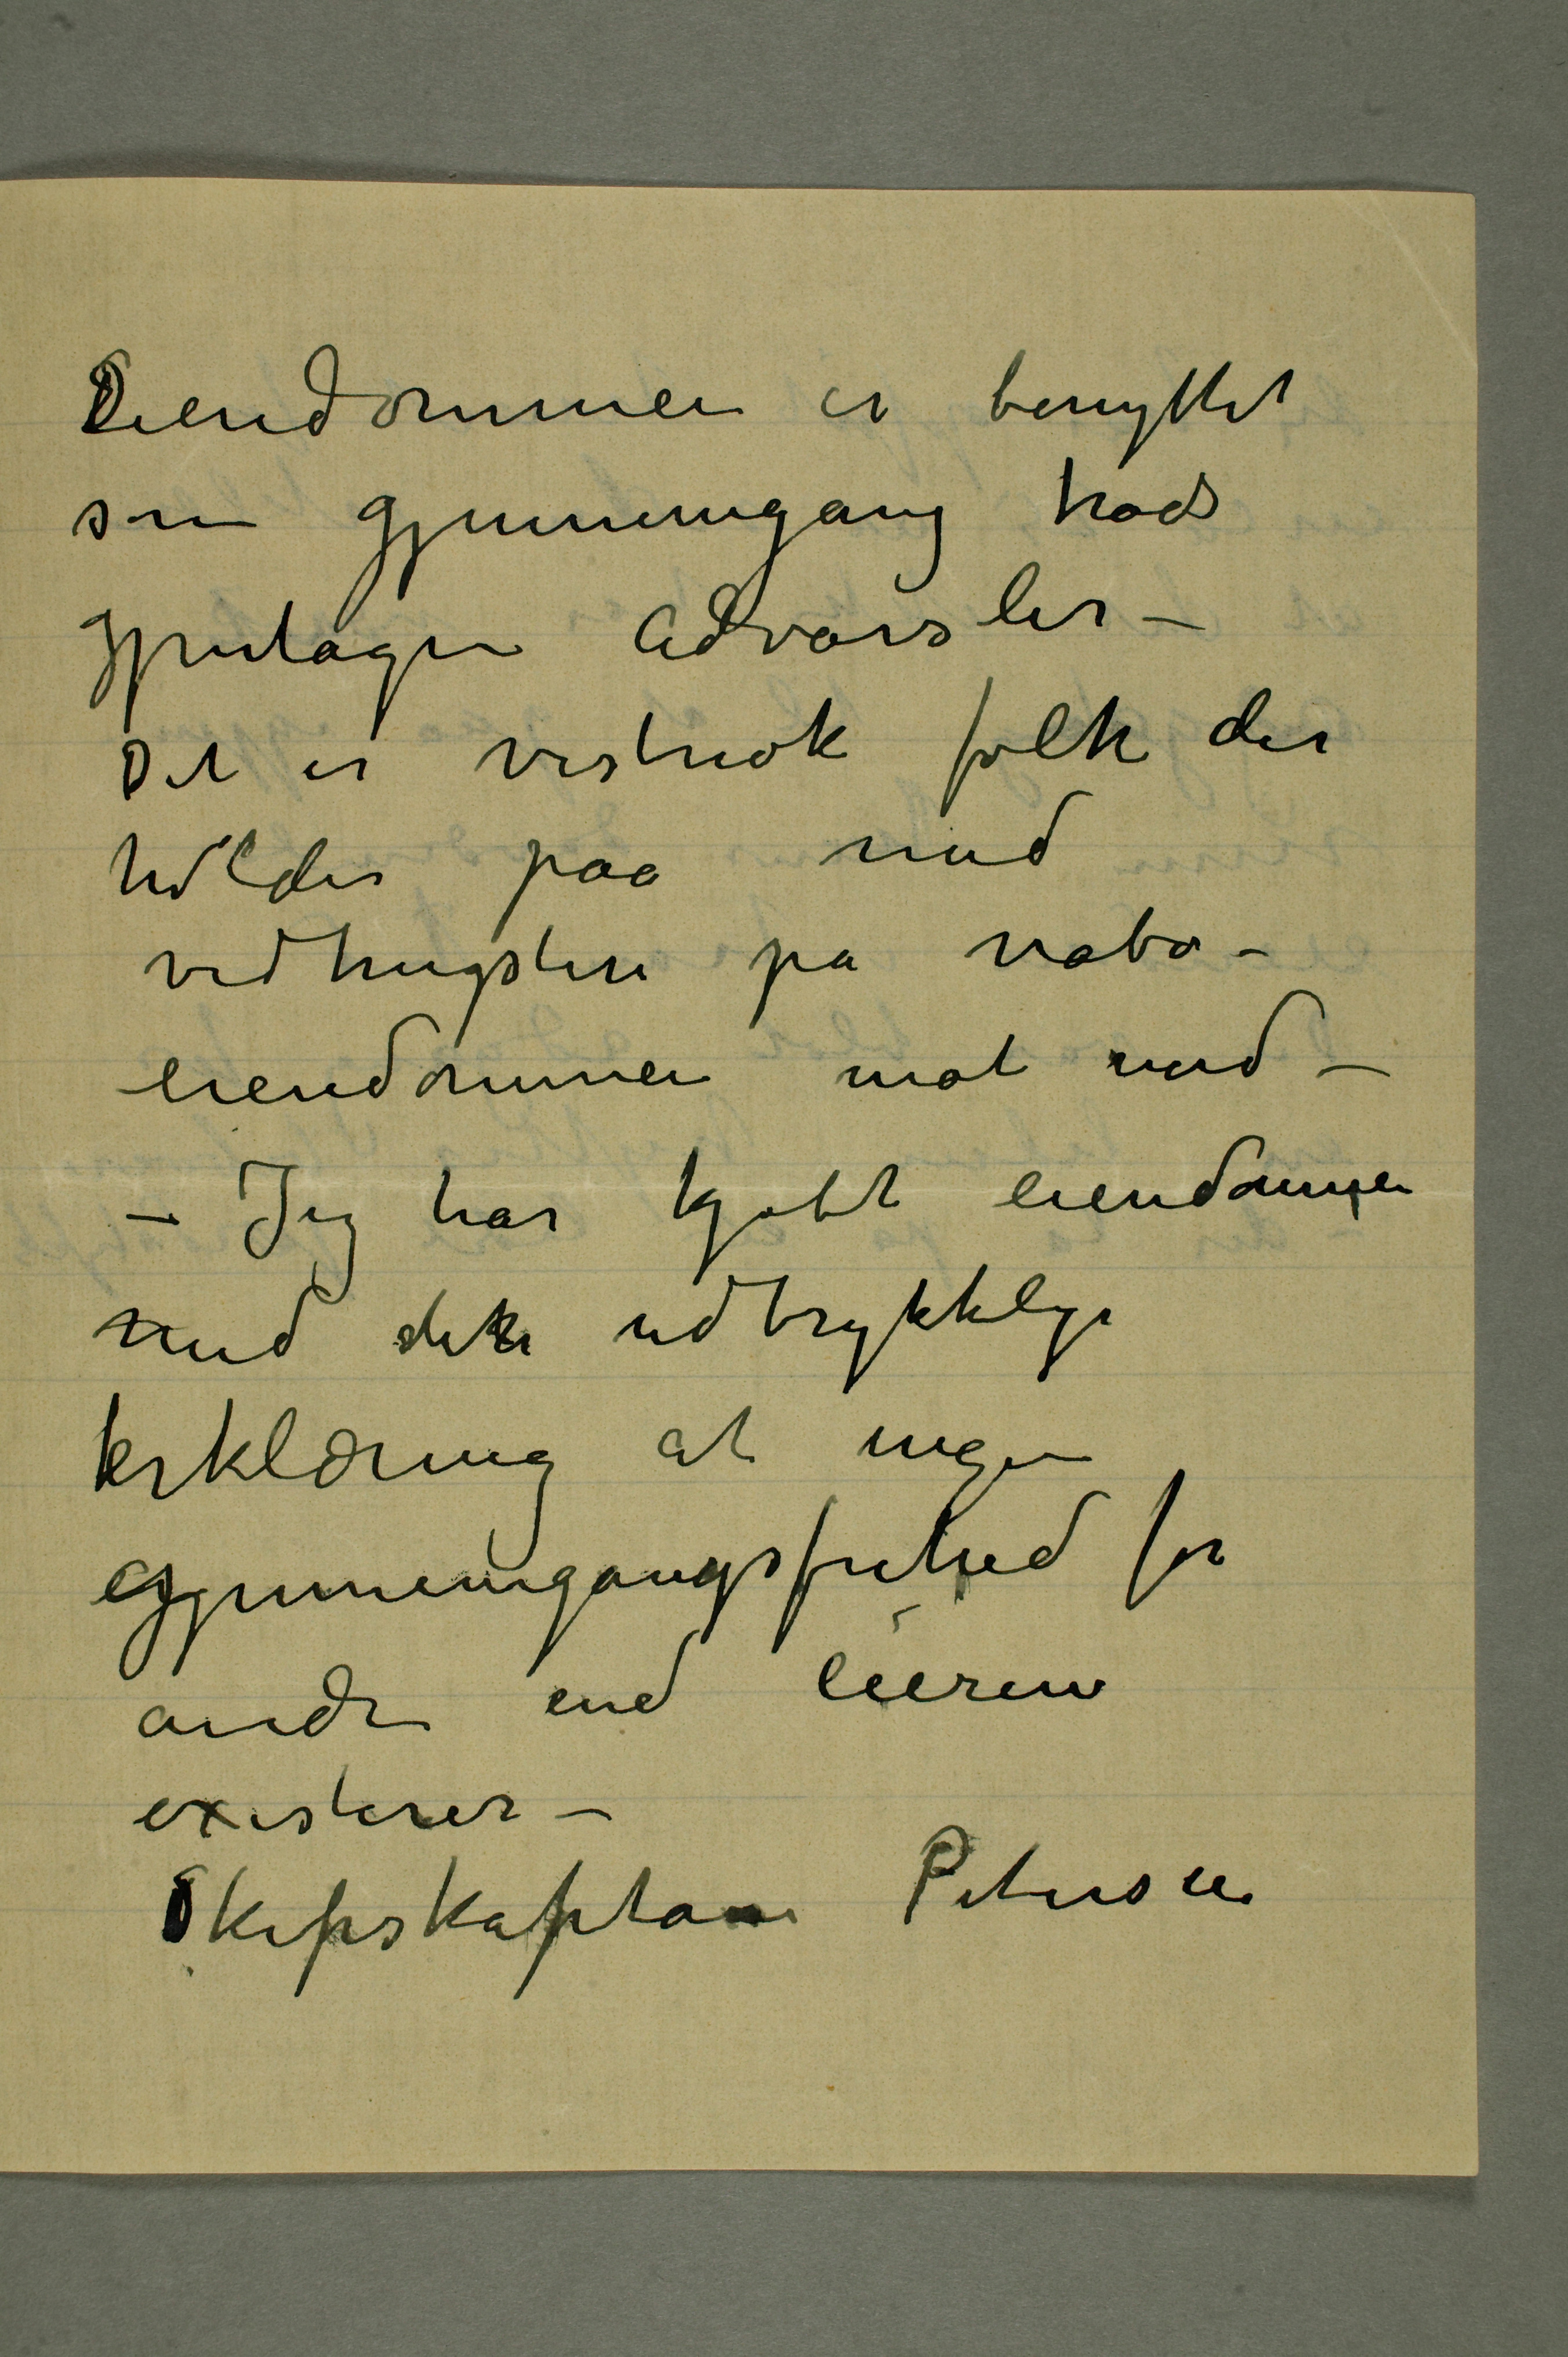 Eiendommen er benyttet
som gjennemgang trods
gjentagen Advarsler –
Det er vistnok folk der
holder paa med
vedhugsten pa nabo-
eiendommen mot nord –
– Jeg har kjøbt eiendommen
med den udtrykkelige
erklæring at ingen
gjennemgangsfrihed for
andre end eieren
existerer –
Skipskaptain Petersen